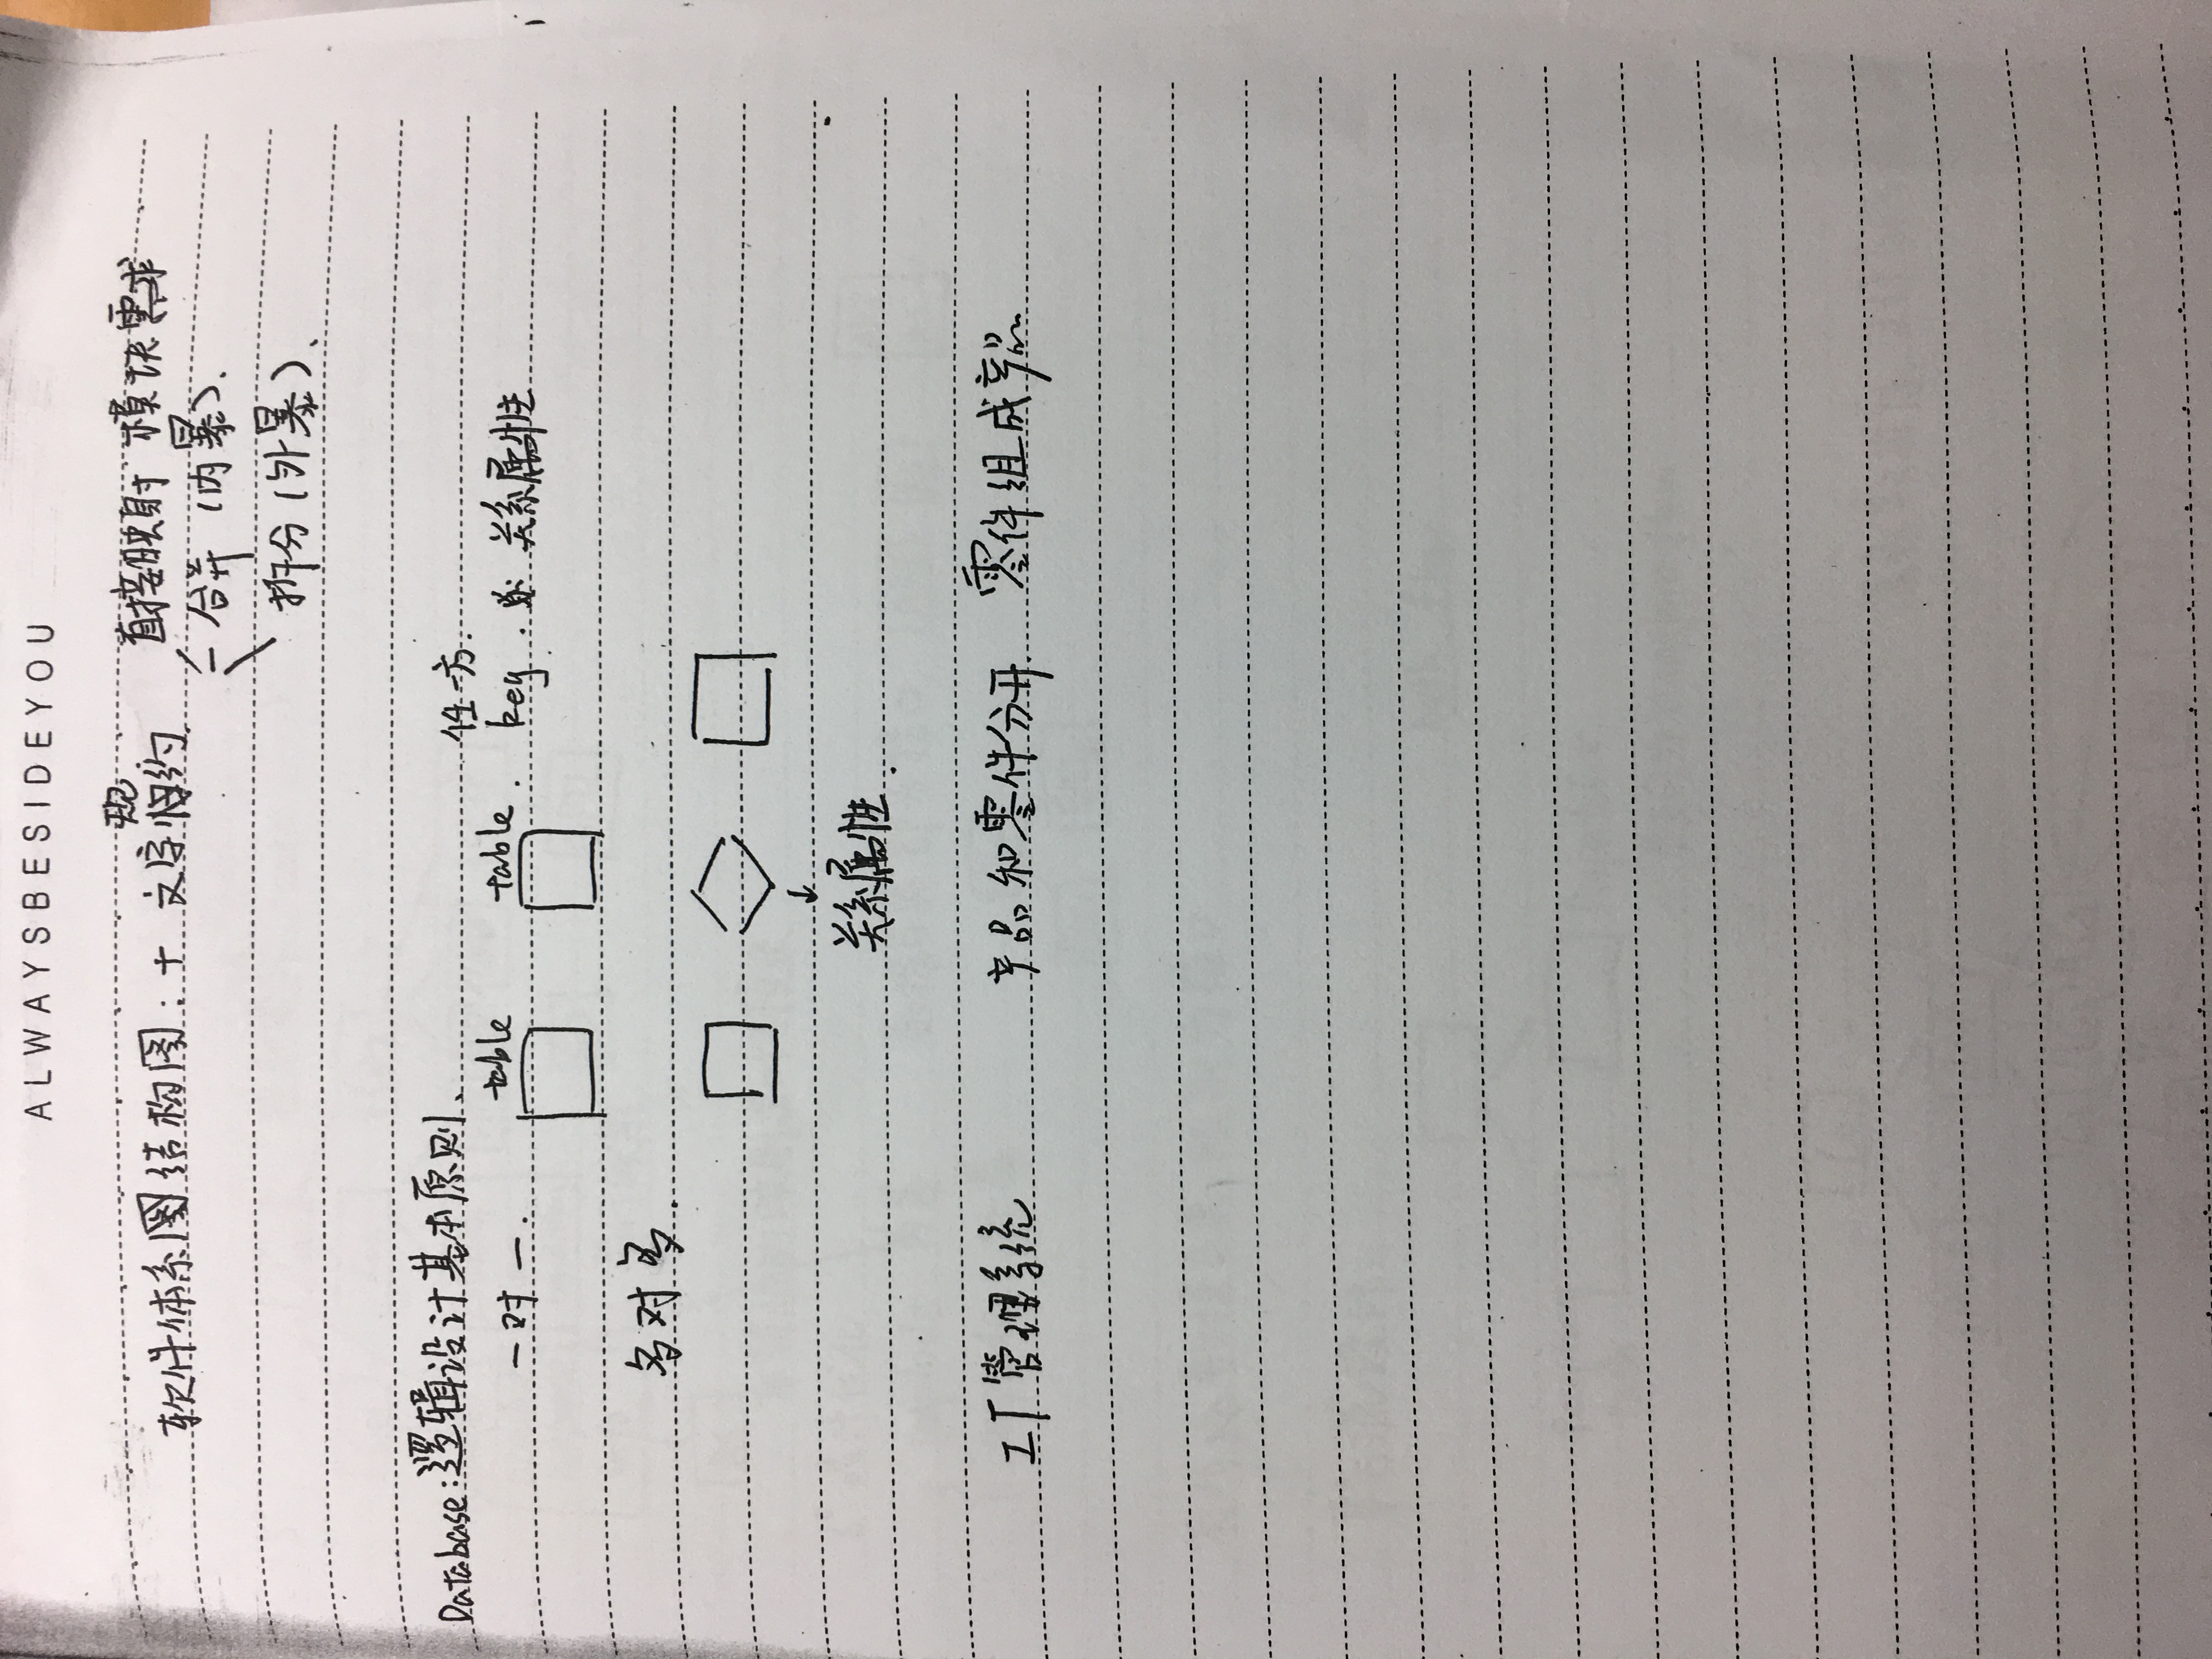 ALWAYSBESIDEYOU
软件体系结构图：+ 文字规约 直接映射 模块需求
合并（内暴）.
拆分（外暴）、
Database：逻辑设计基本原则、
任一方.
一对一. table table. key. 关系属性
多对多.
关系属性.
工厂管理系统 产品和零件分开 零件组成产品